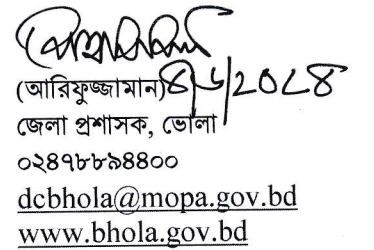 (আরিফুজ্জামান)
জেলা প্রশাসক, ভোলা
০২৪৭৮৮৯৪৪০০
dcbhola@mopa.gov.bd
www.bhola.gov.bd